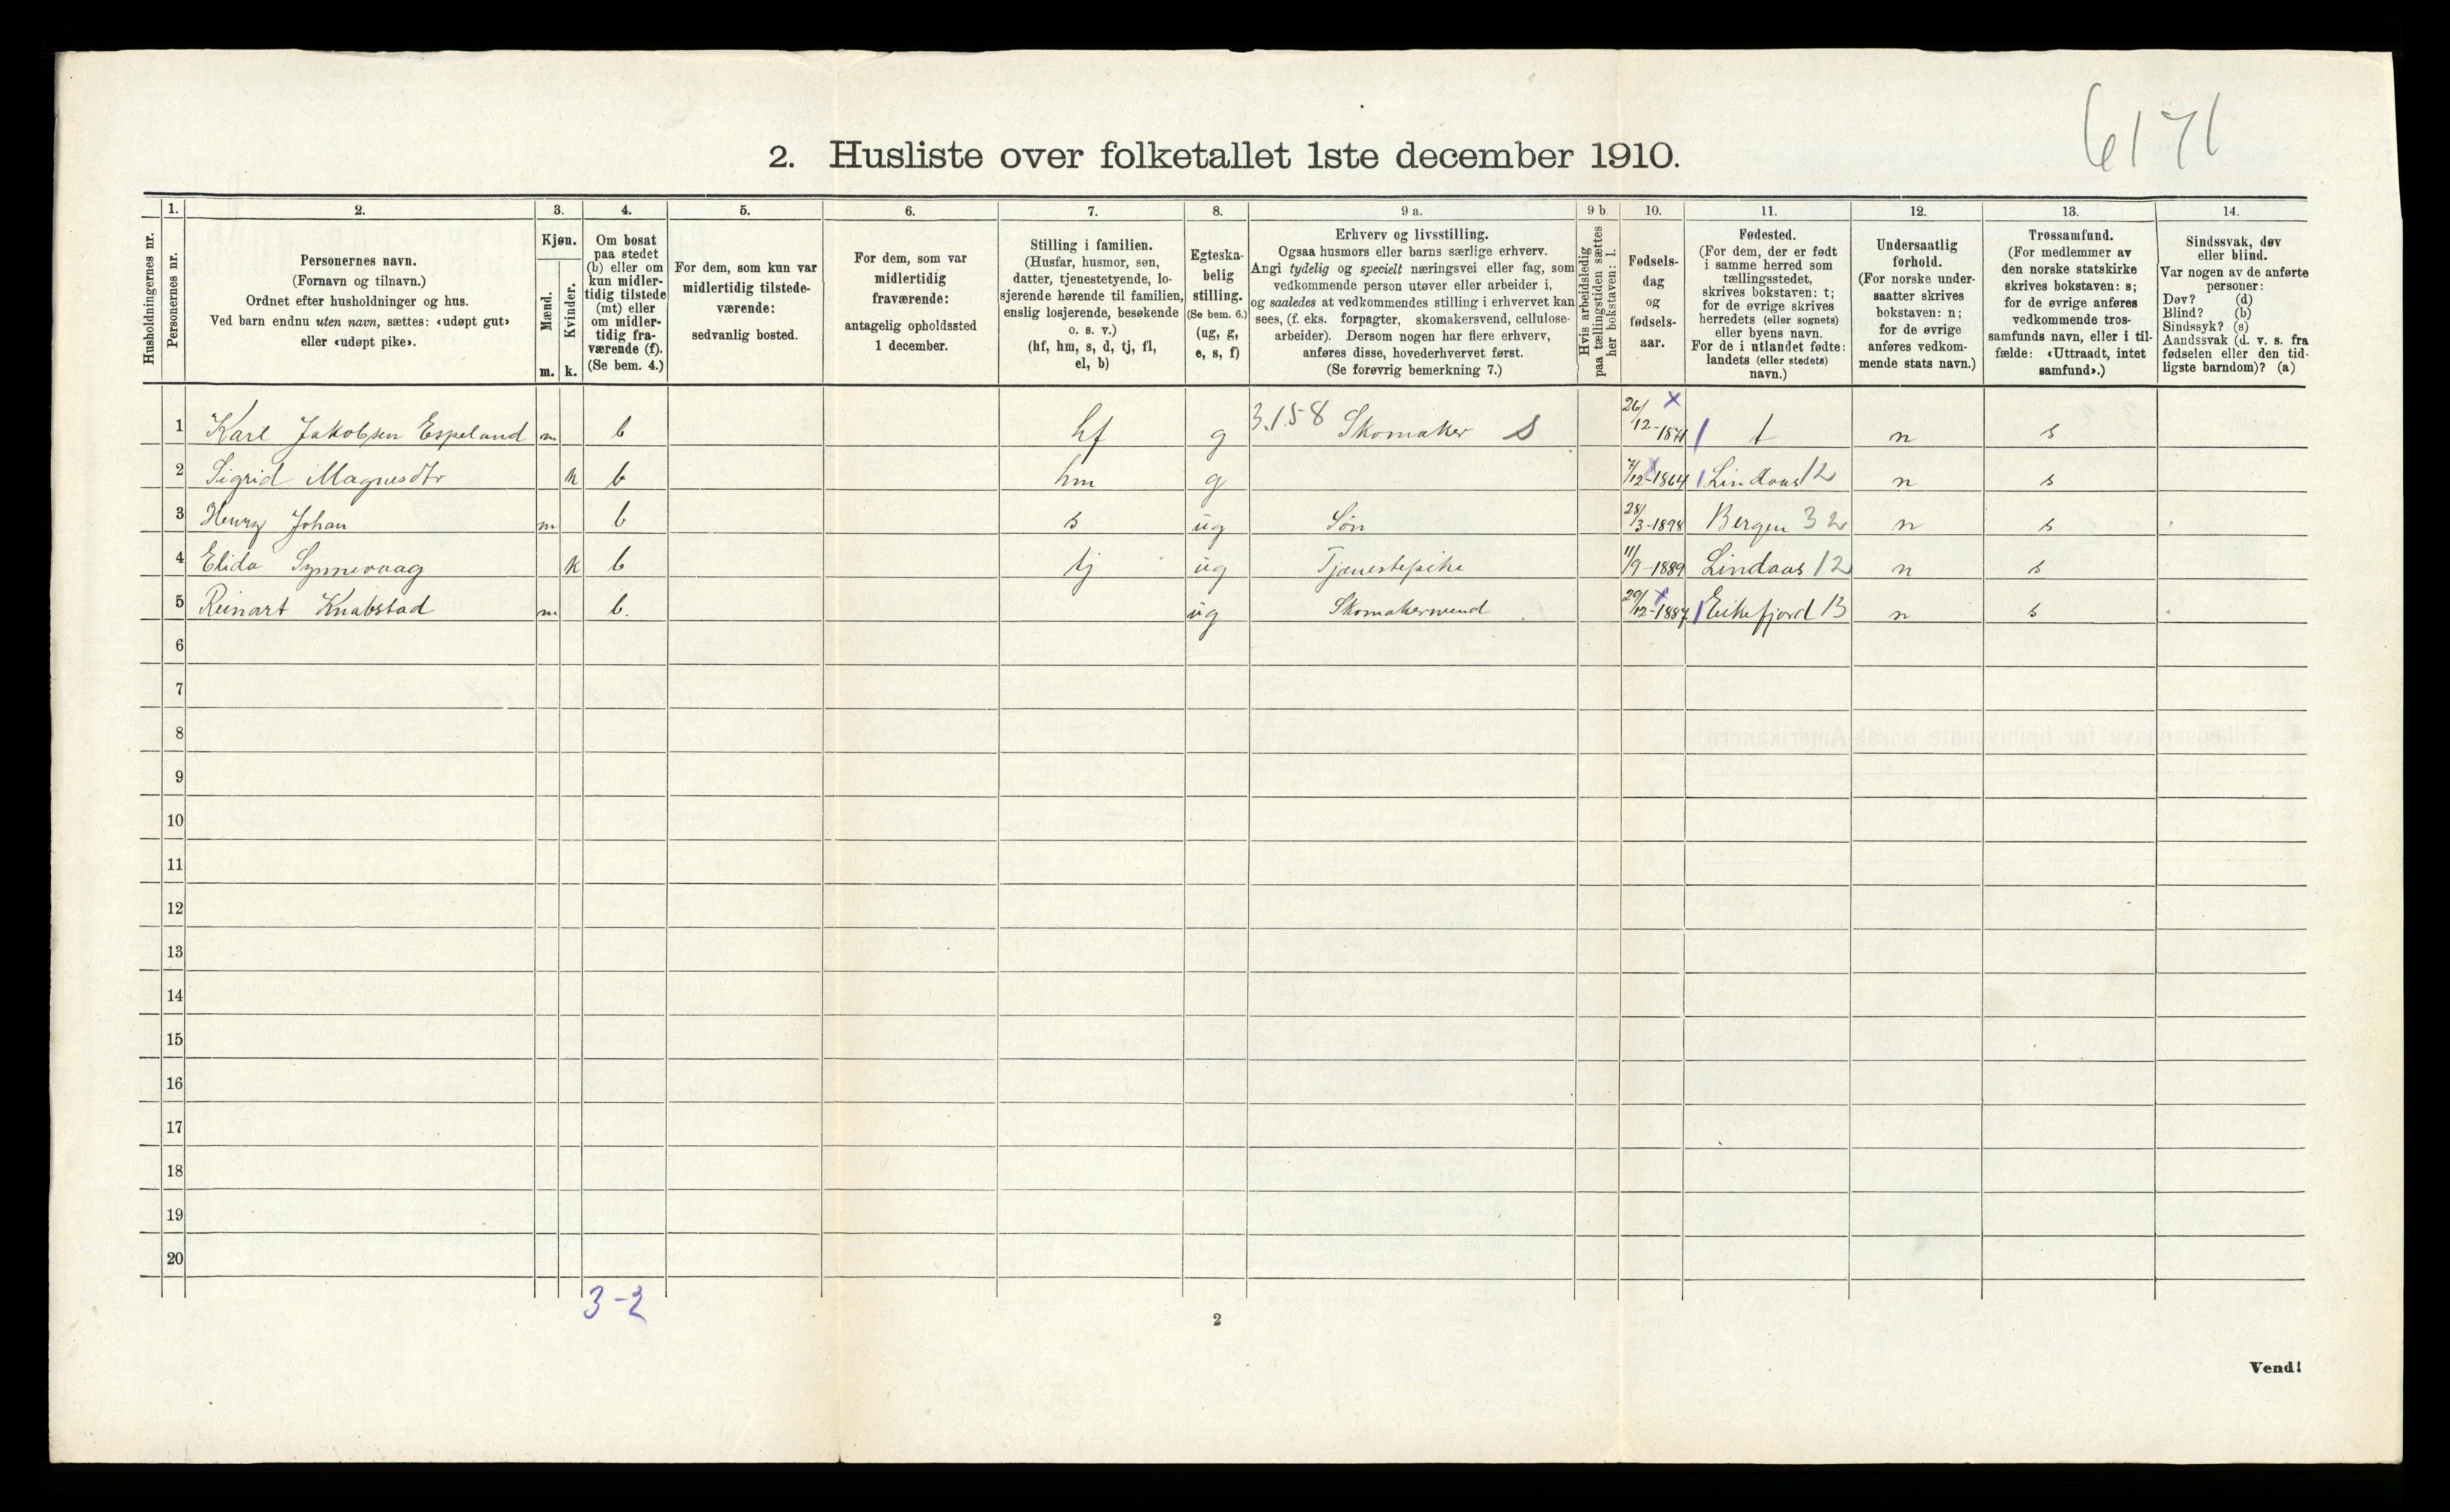 6171
2. Husliste over folketallet 1ste december 1910.
Husholdningernes nr.
1.
Personernes nr.
2.
Personernes navn.
(Fornavn og tilnavn.)
Ordnet efter husholdninger og hus.
Ved barn endnu uten navn, sættes: «udøpt gut»
eller «udøpt pike».
3.
Kjøn.
Mænd.
m.
Kvinder.
k.
4.
Om bosat
paa stedet
(b) eller om
kun midler-
tidig tilstede
(mt) eller
om midler-
tidig fra-
værende (f).
(Se bem. 4.)
5.
For dem, som kun var
midlertidig tilstede-
værende:
sedvanlig bosted.
6.
For dem, som var
midlertidig
fraværende:
antagelig opholdssted
1 december.
7.
Stilling i familien.
(Husfar, husmor, søn,
datter, tjenestetyende, lo-
sjerende hørende til familien,
enslig losjerende, besøkende
o. s. v.)
(hf, hm, s, d, tj, fl,
el, b)
8.
Egteska-
belig
stilling.
(Se bem. 6.)
(ug, g,
e, s, f)
9 a.
Erhverv og livsstilling.
Ogsaa husmors eller barns særlige erhverv.
Angi tydelig og specielt næringsvei eller fag, som
vedkommende person utøver eller arbeider i,
og saaledes at vedkommendes stilling i erhvervet kan
sees, (f. eks. forpagter, skomakersvend, cellulose-
arbeider). Dersom nogen har flere erhverv,
anføres disse, hovederhvervet først.
(Se forøvrig bemerkning 7.)
9 b
Hvis arbeidsledig
paa tællingstiden sættes
her bokstaven: l.
10.
Fødsels-
dag
og
fødsels-
aar.
11.
Fødested.
(For dem, der er født
i samme herred som
tællingsstedet,
skrives bokstaven: t;
for de øvrige skrives
herredets (eller sognets)
eller byens navn.
For de i utlandet fødte:
landets (eller stedets)
navn.)
12.
Undersaatlig
forhold.
(For norske under-
saatter skrives
bokstaven: n;
for de øvrige
anføres vedkom-
mende stats navn.)
13.
Trossamfund.
(For medlemmer av
den norske statskirke
skrives bokstaven: s;
for de øvrige anføres
vedkommende tros-
samfunds navn, eller i til-
fælde: «Uttraadt, intet
samfund».)
14.
Sindssvak, døv
eller blind.
Var nogen av de anførte
personer:
Døv? (d)
Blind? (b)
Sindssyk? (s)
Aandssvak (d. v. s. fra
fødselen eller den tid-
ligste barndom)? (a)
1 Karl Jakobsen Espeland m b hf g 3.158 Skomaker S 26/12-1871 x t n s
2 Sigrid Magnesdtr k b hm g 7/12-1864 x Lindaas 12 n s
3 Henry Johan m b s ug Søn 28/3-1898 Bergen 32 n s
4 Elida Synnevaag k b tj ug Tjenestepike 11/9-1889 Lindaas 12 n s
5 Reinart Knabstad m b. ug Skomakersvend 29/12-1887 x Eikefjord 13 n s
6
7
8
9
10
11
12
13
14
15
16
17
18
19
20
3-2
2
Vend!